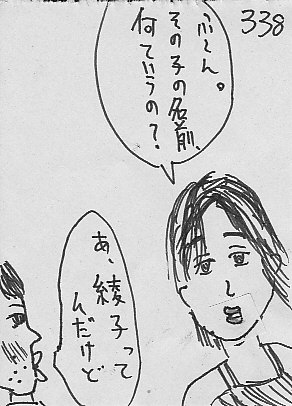 338
ふーん。
その子の名前、
何ていうの？
あ、綾子って
んだけど